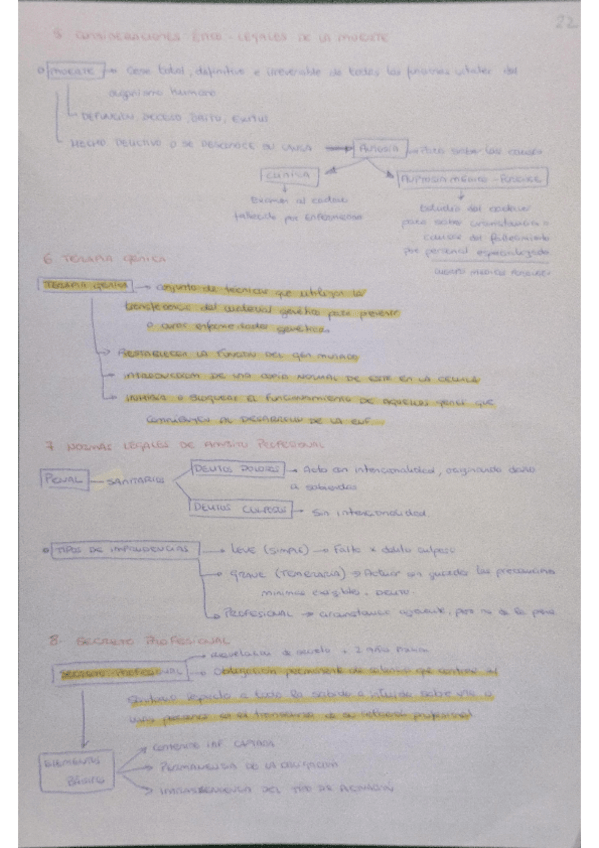 22
5 CONSIDERACIONES ÉTICO-LEGALES DE LA MUERTE
MUERTE → Cese total, definitivo e irreversible de todas las funciones vitales del
organismo humano
HECHO DELICTIVO O SE DESCONOCE SU CAUSA → AUTOPSIA → Para saber las causas
CLÍNICA
AUTOPSIA MÉDICO-FORENSE
Examen al cadáver
fallecido por enfermedad
Estudio del cadáver
para saber circunstancias o
causas del fallecimiento
por personal especializado
CUERPO MÉDICOS FORENSES
6 TERAPIA GÉNICA
TERAPIA GÉNICA → conjunto de técnicas que utilizan la
transferencia del material genético para prevenir
o curar enfermedades genéticas.
→ RESTABLECER LA FUNCIÓN DEL GEN MUTADO
→ INTRODUCCIÓN DE UNA COPIA NORMAL DE ESTE EN LA CÉLULA
→ INHIBIR O BLOQUEAR EL FUNCIONAMIENTO DE AQUELLOS GENES QUE
CONTRIBUYEN AL DESARROLLO DE LA ENF.
7 NORMAS LEGALES DE ÁMBITO PROFESIONAL
PENAL — SANITARIOS
DELITOS DOLOSOS → Acto con intencionalidad, originando daño
a sabiendas
DELITOS CULPOSOS → Sin intencionalidad.
TIPOS DE IMPRUDENCIAS → LEVE (SIMPLE) → Falta x delito culposo
→ GRAVE (TEMERARIA) → Actuar sin guardar las precauciones
mínimas exigibles. DELITO
→ PROFESIONAL → circunstancia agravante, pero no de la pena
8. SECRETO PROFESIONAL
SECRETO PROFESIONAL → Obligación permanente de silencio que contrae el
sanitario respecto a todo lo sabido o intuido sobre una o
varias personas en el transcurso de su relación profesional.
ELEMENTOS
BÁSICOS
→ CONTENIDO INF. CAPTADA
→ PERMANENCIA DE LA OBLIGACIÓN
→ INDEPENDENCIA DEL TIPO DE RELACIÓN